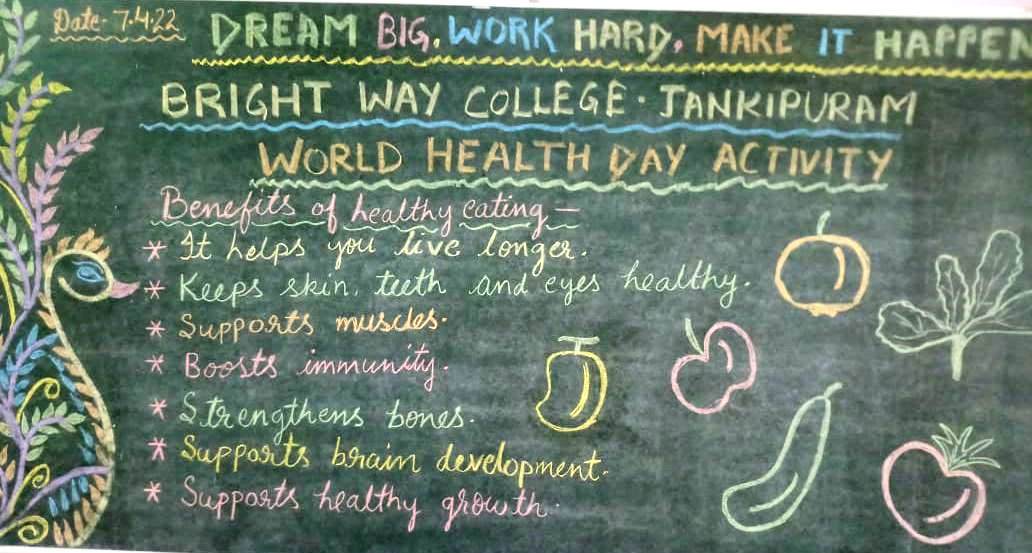 Date- 7.4.22
DREAM BIG, WORK HARD, MAKE IT HAPPEN
BRIGHT WAY COLLEGE · JANKIPURAM
WORLD HEALTH DAY ACTIVITY
Benefits of healthy eating –
* It helps you live longer.
* Keeps skin, teeth and eyes healthy.
* Supports muscles.
* Boosts immunity.
* Strengthens bones.
* Supports brain development.
* Supports healthy growth.